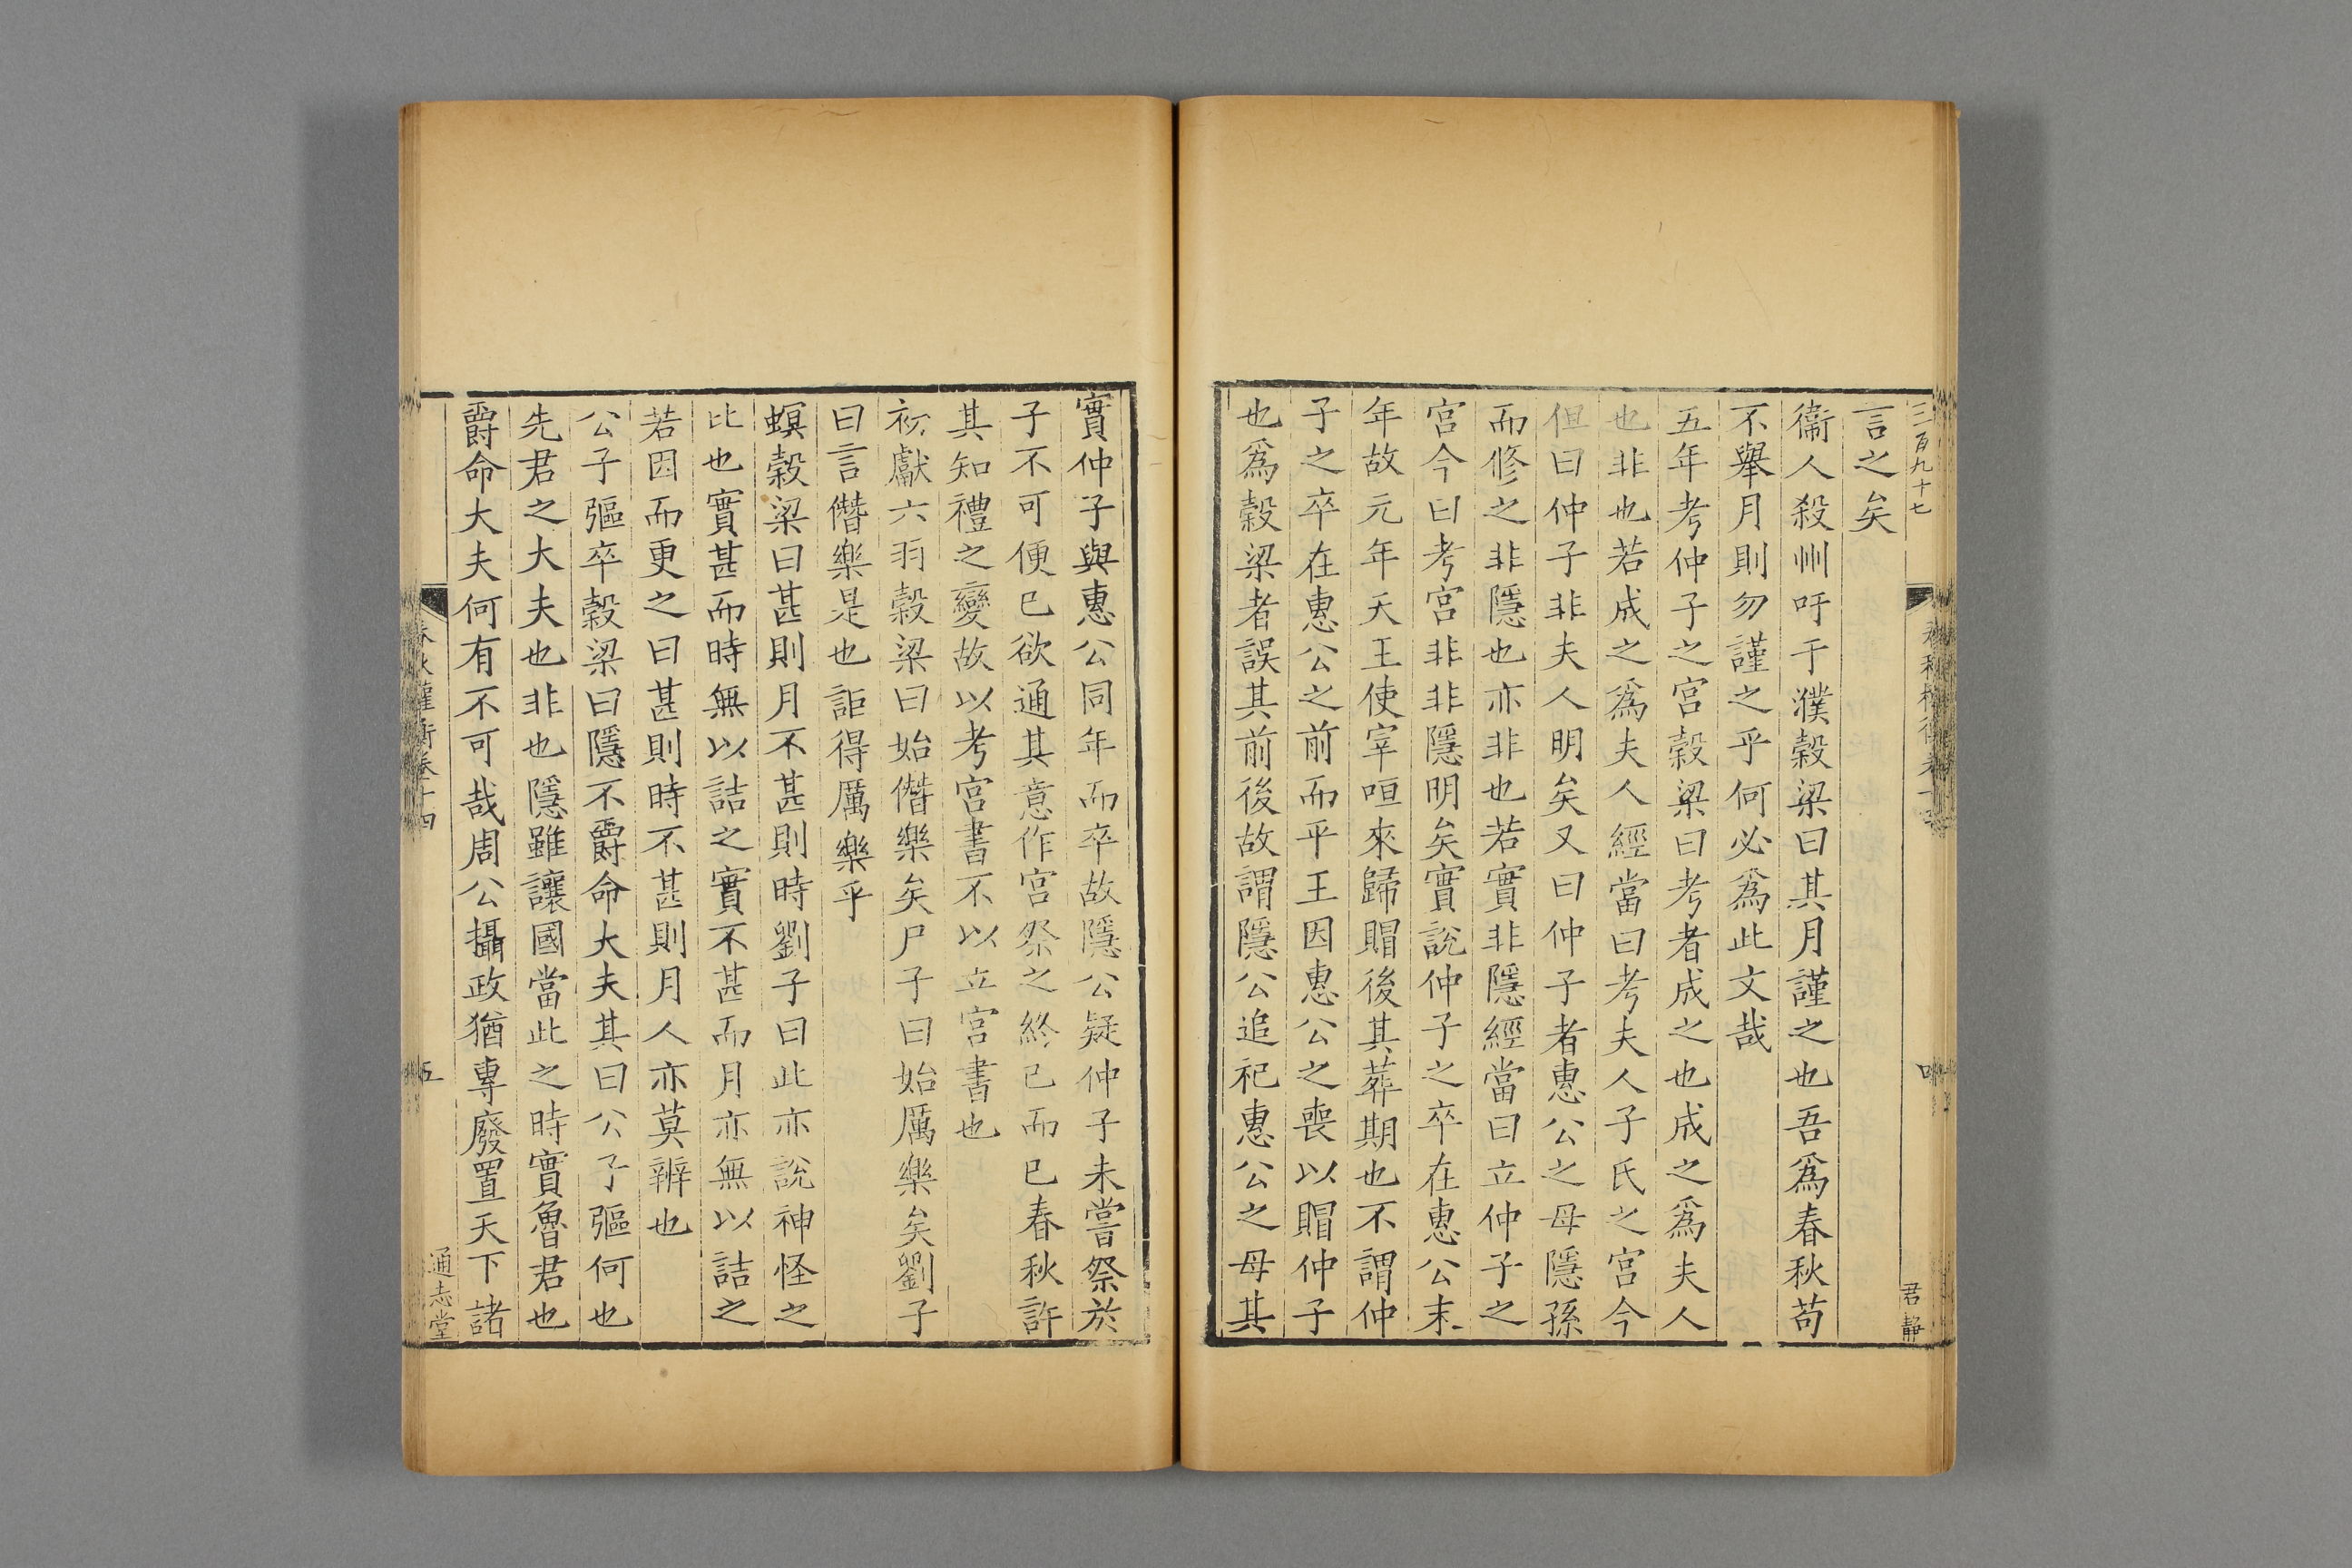 三百九十七
四
君靜
言之矣
衞人殺州吁于濮穀梁曰其月謹之也吾爲春秋苟
不舉月則勿謹之乎何必爲此文哉
五年考仲子之宮穀梁曰考者成之也成之爲夫人
也非也若成之爲夫人經當曰考夫人子氏之宮今
但曰仲子非夫人明矣又曰仲子者惠公之母隱孫
而修之非隱也亦非也若實非隱經當曰立仲子之
宮今曰考宮非非隱明矣實說仲子之卒在惠公末
年故元年天王使宰咺來歸賵後其葬期也不謂仲
子之卒在惠公之前而平王因惠公之喪以賵仲子
也爲穀梁者誤其前後故謂隱公追祀惠公之母其
實仲子與惠公同年而卒故隱公疑仲子未嘗祭於
子不可便已欲通其意作宮祭之終已而已春秋許
其知禮之變故以考宮書不以立宮書也
初獻六羽穀梁曰始僭樂矣尸子曰始厲樂矣劉子
曰言僭樂是也詎得厲樂乎
螟穀梁曰甚則月不甚則時劉子曰此亦說神怪之
比也實甚而時無以詰之實不甚而月亦無以詰之
若因而更之曰甚則時不甚則月人亦莫辨也
公子彄卒穀梁曰隱不爵命大夫其曰公子彄何也
先君之大夫也非也隱雖讓國當此之時實魯君也
爵命大夫何有不可哉周公攝政猶專廢置天下諸
春秋權衡卷十四
五
通志堂